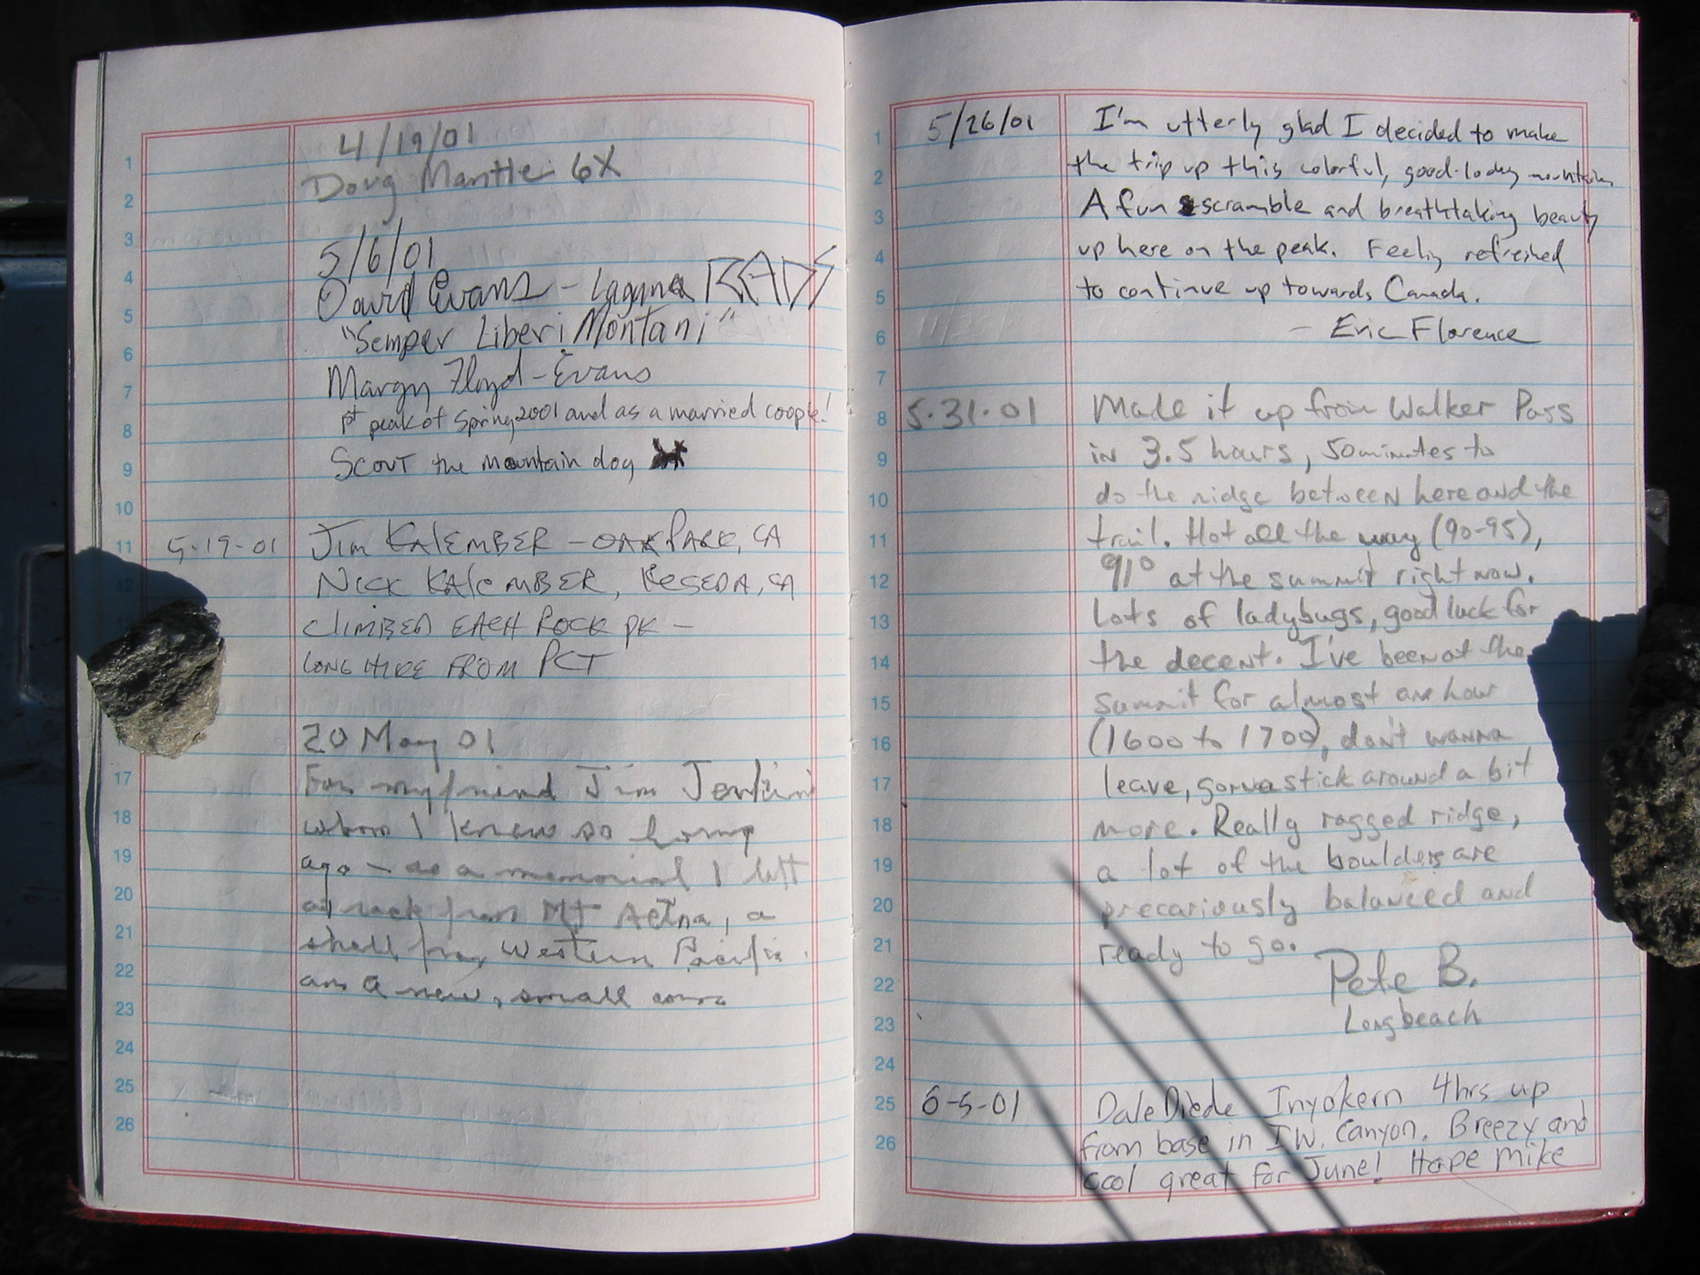 4/19/01
Doug Mantle 6X
5/6/01
David Evans - Laguna RADS
"Semper Liberi Montani"
Margy Floyd-Evans
1st peak of Spring 2001 and as a married coople!
Scout the mountain dog
5-19-01 Jim Kalember - Oak Park, CA
Nick Kalember, Reseda, CA
climbed each rock pk -
long hike from PCT
20 May 01
For my friend Jim Jenkins
whom I knew so long
ago - as a memorial I left
a rock from Mt Aetna, a
shell from Western Pacific
a new, small
1
2
3
4
5
6
7
8
9
10
11
12
17
18
19
20
21
22
23
24
25
26
5/26/01 I'm utterly glad I decided to make
the trip up this colorful, good-looking mountain.
A fun scramble and breathtaking beauty
up here on the peak. Feeling refreshed
to continue up towards Canada.
- Eric Florence
5.31.01 Made it up from Walker Pass
in 3.5 hours, 50 minutes to
do the ridge between here and the
trail. Hot all the way (90-95),
91° at the summit right now.
Lots of ladybugs, good luck for
the decent. I've been at the
summit for almost an hour
(1600 to 1700), don't wanna
leave, gonna stick around a bit
more. Really ragged ridge,
a lot of the boulders are
precariously balanced and
ready to go.
Pete B.
Longbeach
6-5-01 Dale Diede Inyokern 4hrs up
from base in I.W. Canyon. Breezy and
cool great for June! Hope Mike
1
2
3
4
5
6
7
8
9
10
11
12
13
14
15
16
17
18
19
20
21
22
23
24
25
26